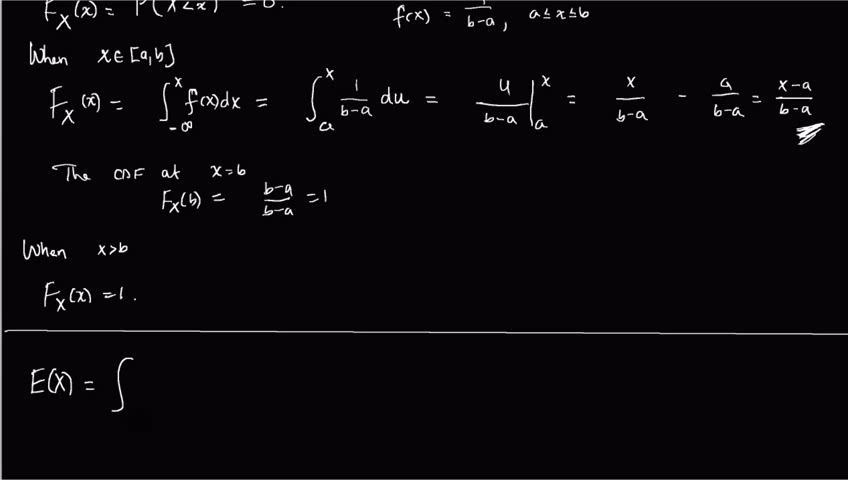 F_X(x) = P(X<x) = 0. f(x) = 1/(b-a), a≤x≤b
When x∈[a,b]
F_X(x) = ∫_{-∞}^{x} f(x)dx = ∫_{a}^{x} 1/(b-a) du = u/(b-a) |_{a}^{x} = x/(b-a) - a/(b-a) = (x-a)/(b-a)
The CDF at x=b
F_X(b) = (b-a)/(b-a) =1
When x>b
F_X(x) =1.
E(X) = ∫